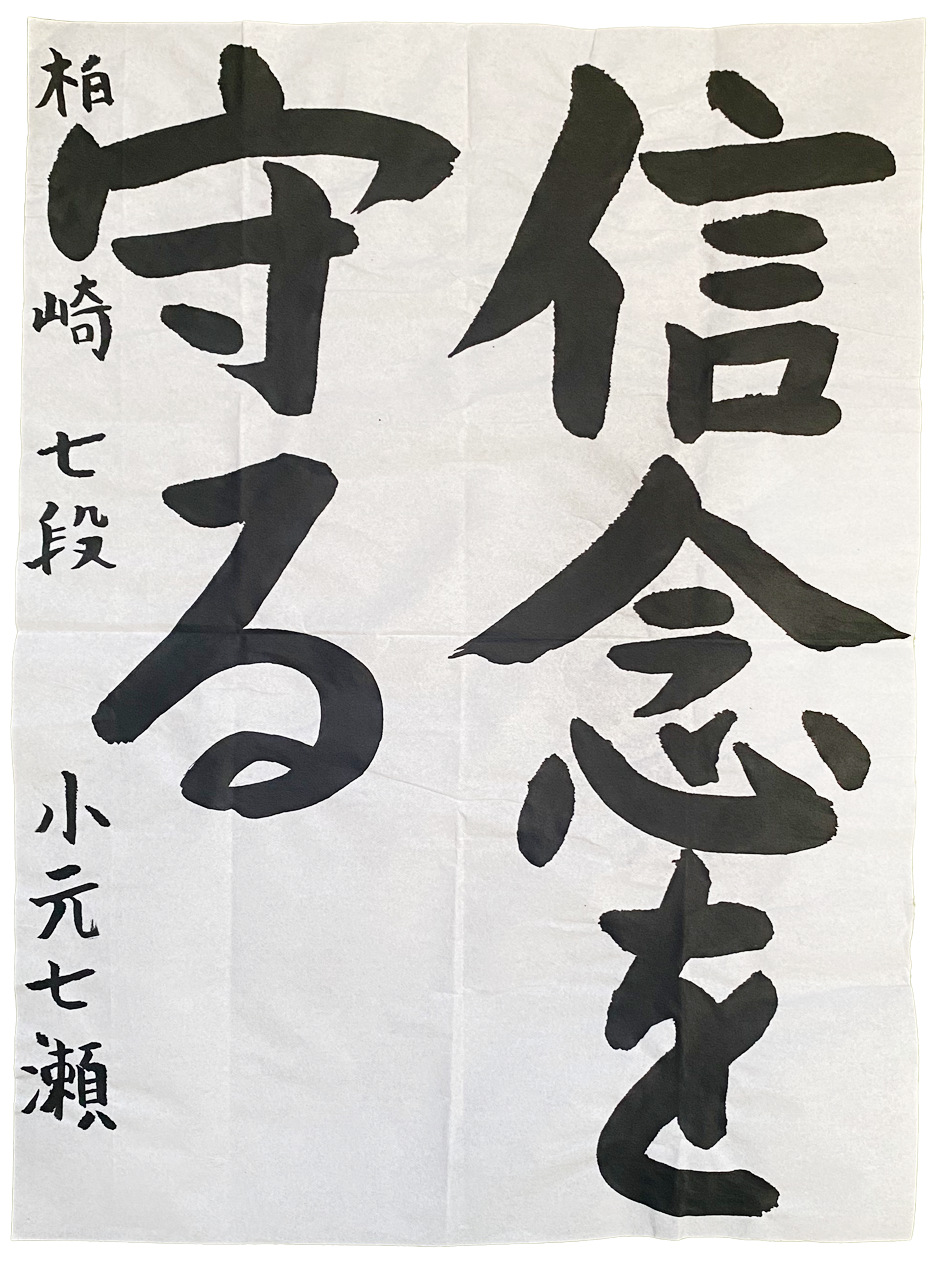 信念を
守る
柏崎 七段 小元七瀬